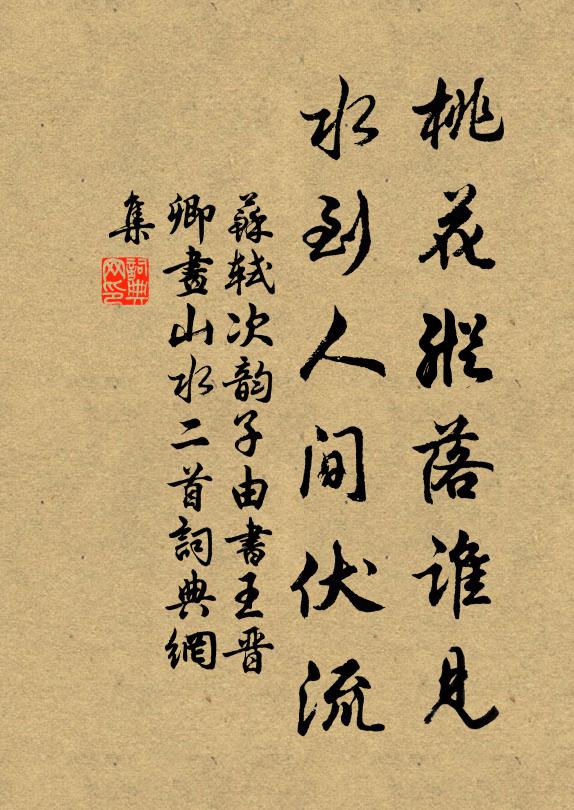 桃花縱落誰見
水到人間伏流
蘇軾次韵子由書王晋
卿畫山水二首詞典網
集
詞典網印